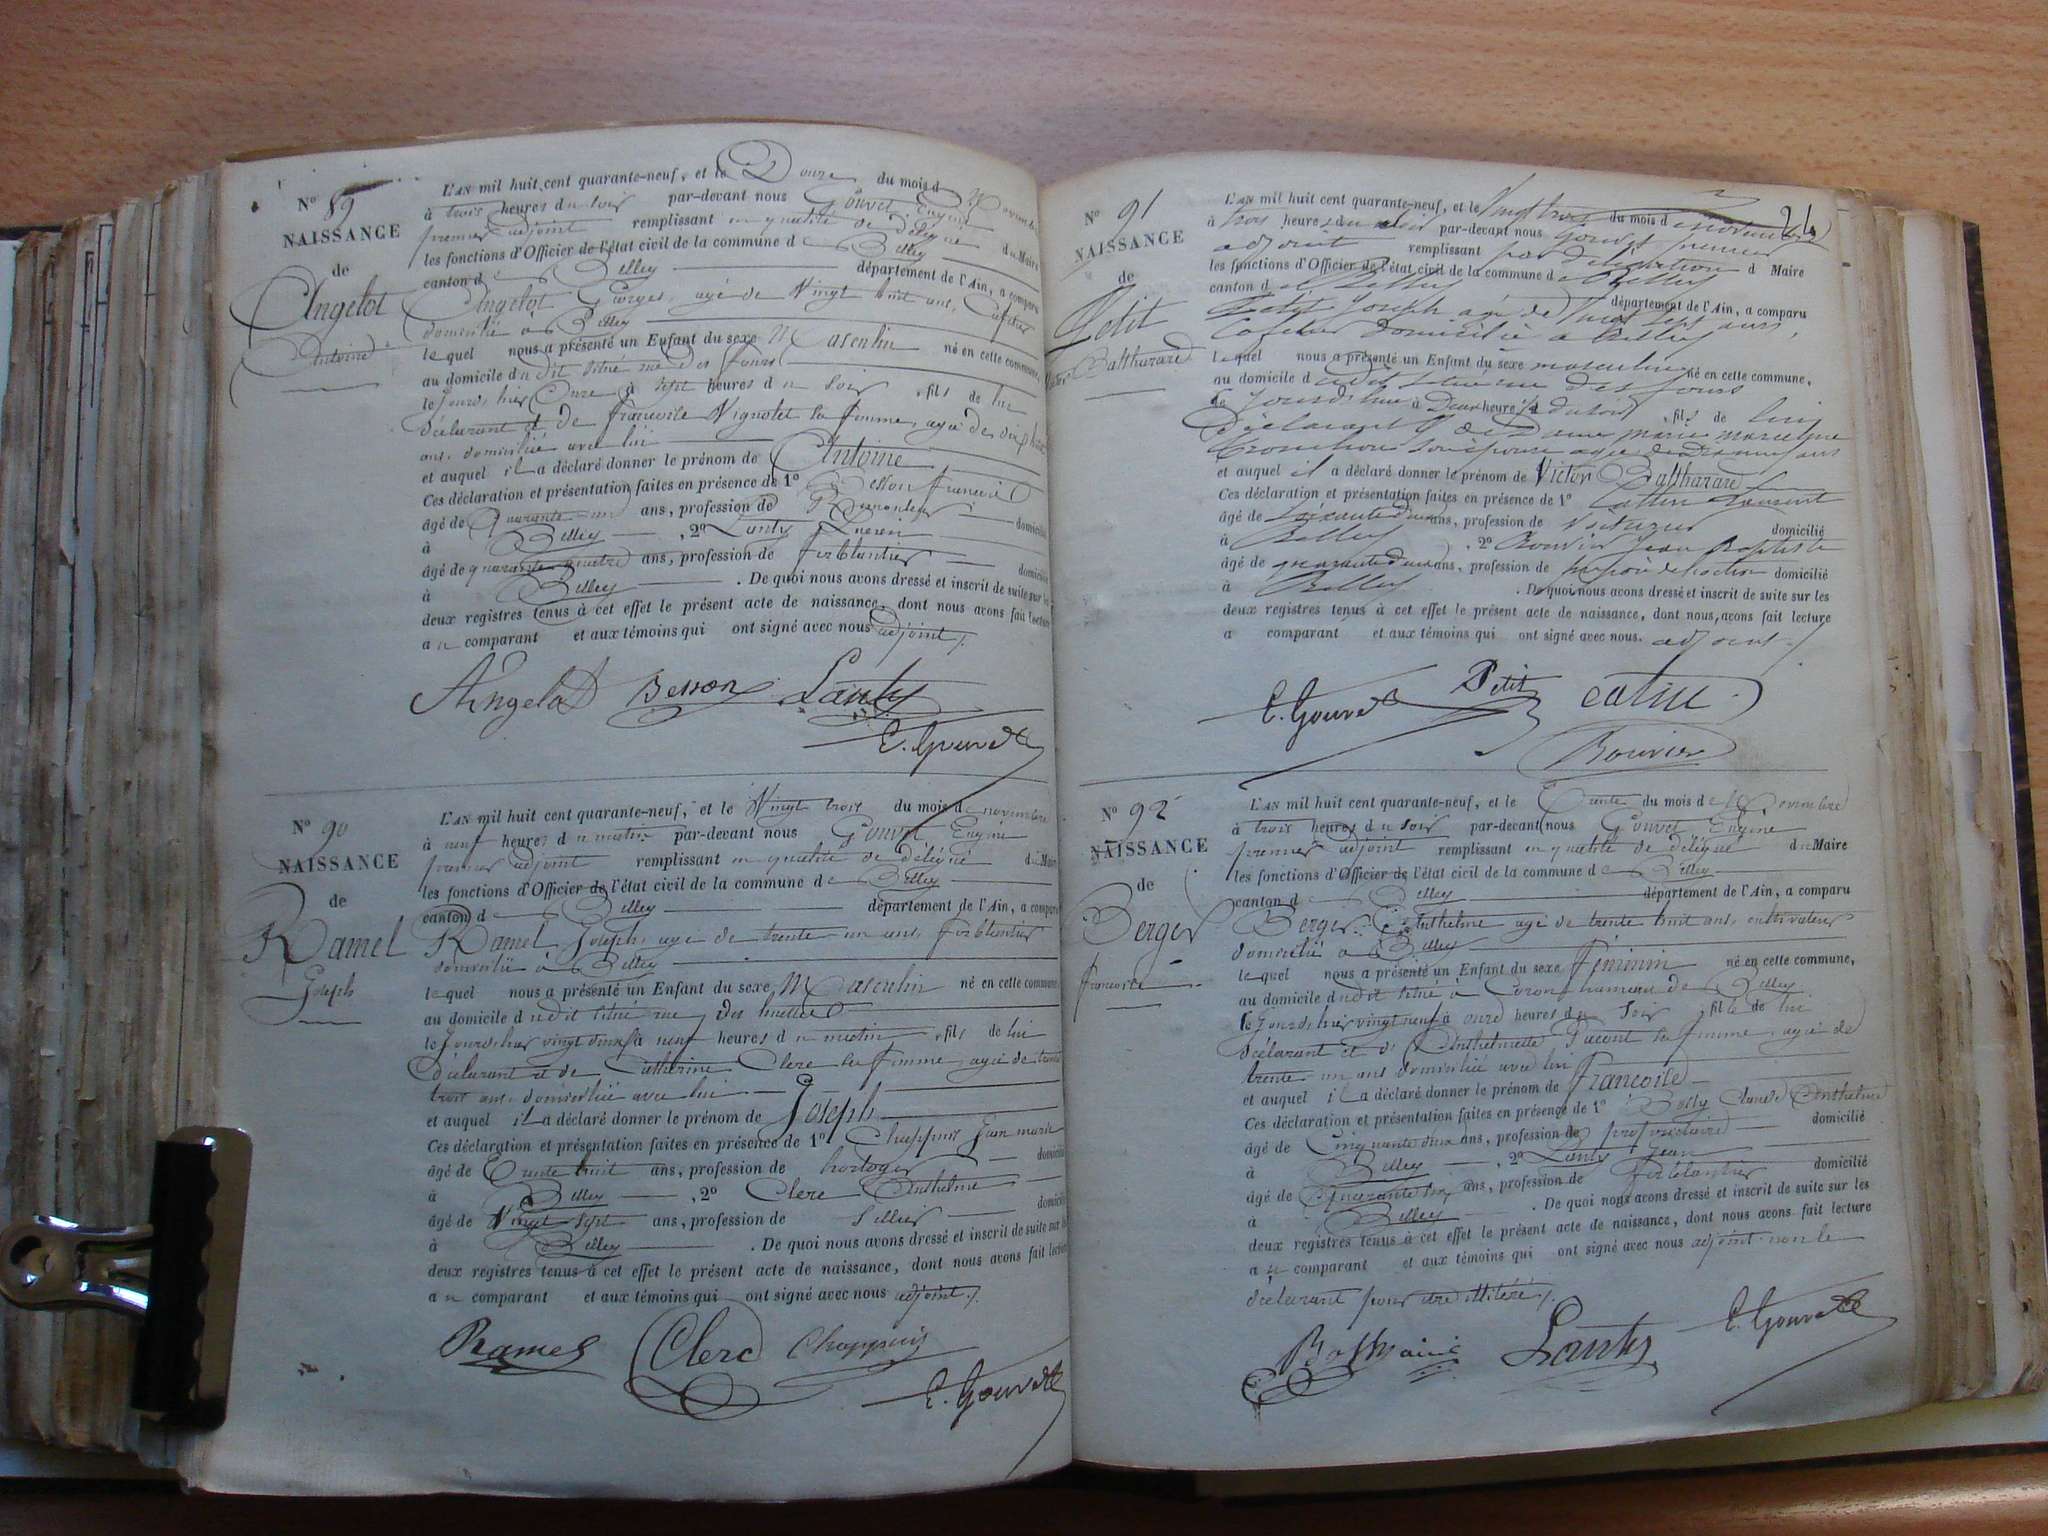 N° 89
NAISSANCE
de
Angelot
Antoine
L'AN mil huit cent quarante-neuf, et le Douze du mois de Novembre
à trois heures du soir par-devant nous Gouvet Eugène
premier adjoint remplissant en qualité de délégué du Maire
les fonctions d'Officier de l'état civil de la commune de Belley
canton de Belley département de l'Ain, a comparu
Angelot Georges, agé de Vingt huit ans,
domicilié à Belley
lequel nous a présenté un Enfant du sexe Masculin né en cette commune,
au domicile du dit situé rue des fours
le jourd'hier Onze à sept heures du soir, fils de lui
déclarant et de françoise Vignolet sa femme, agée de dix huit
ans, domiciliée avec lui
et auquel il a déclaré donner le prénom de Antoine
Ces déclaration et présentation faites en présence de 1° Besson françois
âgé de Quarante un ans, profession de domicilié
à Belley, 2° Lanty
âgé de quarante quatre ans, profession de ferblantier domicilié
à Belley. De quoi nous avons dressé et inscrit de suite sur les
deux registres tenus à cet effet le présent acte de naissance, dont nous avons fait lecture
au comparant et aux témoins qui ont signé avec nous adjoint /.
Angelot Besson Lanty
E. Gouvet
N° 90
NAISSANCE
de
Ramel
Joseph
L'AN mil huit cent quarante-neuf, et le Vingt trois du mois de novembre
à neuf heures du matin par-devant nous Gouvet Eugène
premier adjoint remplissant en qualité de délégué du Maire
les fonctions d'Officier de l'état civil de la commune de Belley
canton de Belley département de l'Ain, a comparu
Ramel Joseph, agé de trente un ans, ferblantier
domicilié à Belley
lequel nous a présenté un Enfant du sexe Masculin né en cette commune
au domicile du dit situé rue des
le jourd'hier vingt deux à neuf heures du matin, fils de lui
déclarant et de Catherine Clerc sa femme, agée de trente
trois ans, domiciliée avec lui
et auquel il a déclaré donner le prénom de Joseph
Ces déclaration et présentation faites en présence de 1° Chappuis Jean marie
âgé de Trente huit ans, profession de horloger domicilié
à Belley, 2° Clerc Anthelme
âgé de Vingt sept ans, profession de Sellier domicilié
à Belley. De quoi nous avons dressé et inscrit de suite sur les
deux registres tenus à cet effet le présent acte de naissance, dont nous avons fait lecture
au comparant et aux témoins qui ont signé avec nous adjoint /.
Ramel Clerc Chappuis
E. Gouvet
24
N° 91
NAISSANCE
de
Petit
Victor Balthazard
L'AN mil huit cent quarante-neuf, et le Vingt trois du mois de novembre
à trois heures du soir par-devant nous Gouvet premier
adjoint remplissant par délégation d Maire
les fonctions d'Officier de l'état civil de la commune de Belley
canton de Belley département de l'Ain, a comparu
Petit Joseph agé de vingt sept ans,
Cafetier domicilié à Belley
lequel nous a présenté un Enfant du sexe masculin né en cette commune,
au domicile du dit situé rue des fours
ce jourd'hui à Deux heures 1/2 du soir, fils de lui
déclarant et de Dame marie
son épouse agée de
et auquel il a déclaré donner le prénom de Victor Balthazard
Ces déclaration et présentation faites en présence de 1° Catin Laurent
âgé de Soixante deux ans, profession de Voiturier domicilié
à Belley, 2° Bouvier Jean Baptiste
âgé de quarante deux ans, profession de domicilié
à Belley. De quoi nous avons dressé et inscrit de suite sur les
deux registres tenus à cet effet le présent acte de naissance, dont nous avons fait lecture
a comparant et aux témoins qui ont signé avec nous. adjoint. /
E. Gouvet Petit Catin
Bouvier
N° 92
NAISSANCE
de
Berger
françoise
L'AN mil huit cent quarante-neuf, et le Trente du mois de Novembre
à trois heures du soir par-devant nous Gouvet Eugène
premier adjoint remplissant en qualité de délégué du Maire
les fonctions d'Officier de l'état civil de la commune de Belley
canton de Belley département de l'Ain, a comparu
Berger Anthelme agé de trente huit ans, cultivateur
domicilié à Belley
lequel nous a présenté un Enfant du sexe féminin né en cette commune,
au domicile du dit situé à Coron hameau de Belley
le jourd'hier vingt neuf à onze heures du soir, fille de lui
déclarant et d'Anthelmette sa femme, agée de
trente un ans domiciliée avec lui
et auquel il a déclaré donner le prénom de françoise
Ces déclaration et présentation faites en présence de 1° Claude Anthelme
âgé de Cinquante deux ans, profession de propriétaire domicilié
à Belley, 2° Lanty Jean
âgé de Quarante ans, profession de ferblantier domicilié
à Belley. De quoi nous avons dressé et inscrit de suite sur les
deux registres tenus à cet effet le présent acte de naissance, dont nous avons fait lecture
au comparant et aux témoins qui ont signé avec nous adjoint non le
déclarant pour être illitéré /.
Lanty E. Gouvet